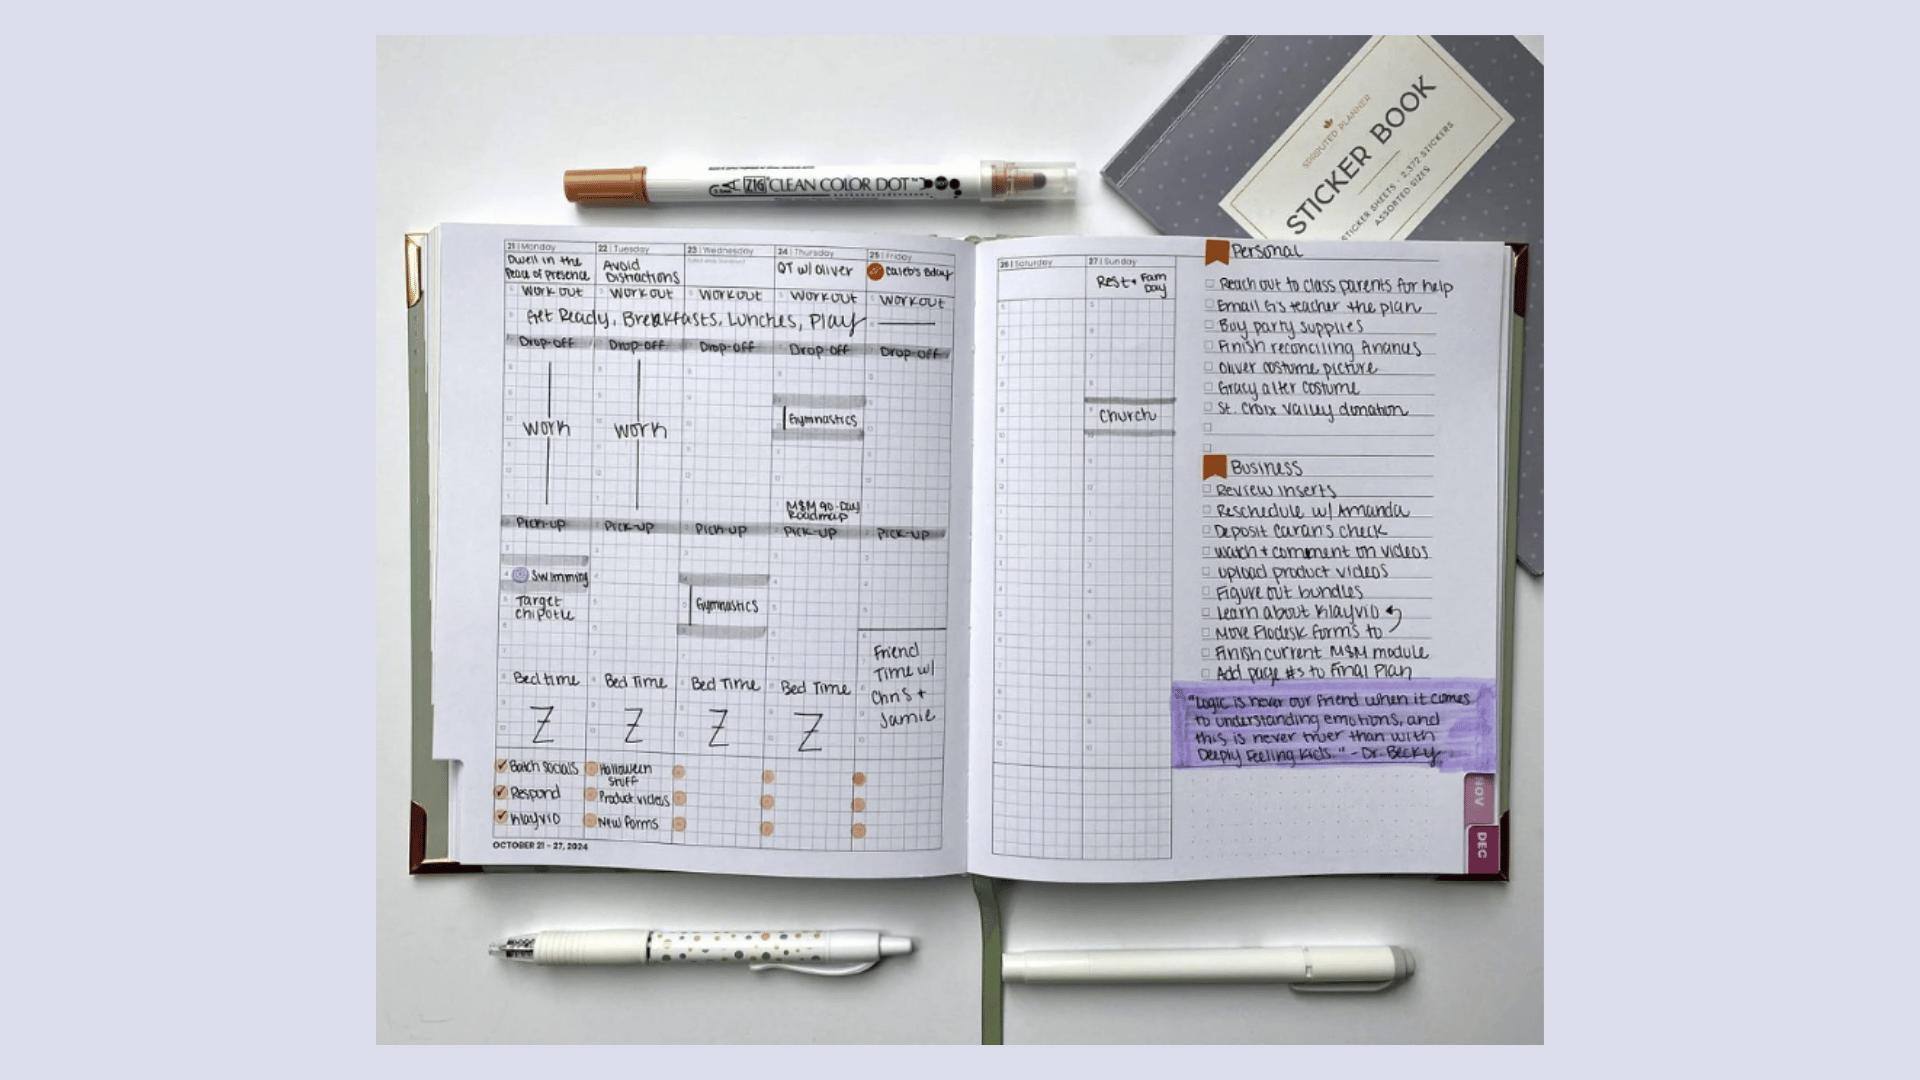 SPROUTED PLANNER
STICKER BOOK
STICKER SHEETS · 2,372 STICKERS
ASSORTED SIZES
ZIG CLEAN COLOR DOT™
21 | Monday
Dwell in the
Peace of Presence
Workout
Get Ready, Breakfasts, Lunches, Play
Drop-off
Work
Pick-up
Swimming
Target
Chipotle
Bedtime
Z
Batch Socials
Respond
Klayvio
22 | Tuesday
Avoid
Distractions
Workout
Drop-off
Work
Pick-up
Bed Time
Z
Halloween
Stuff
Product videos
New Forms
23 | Wednesday
Workout
Drop-off
Pick-up
Gymnastics
Bed Time
Z
24 | Thursday
QT w/ Oliver
Workout
Drop off
Gymnastics
M&M 90-Day
Roadmap
Pick-up
Bed Time
Z
25 | Friday
Caleb's Bday
Workout
Drop-off
Pick-up
Friend
Time w/
Chris +
Jamie
OCTOBER 21 - 27, 2024
26 | Saturday
27 | Sunday
Rest + Fam
Day
Church
Personal
Reach out to class parents for help
Email G's teacher the plan
Buy party supplies
Finish reconciling Finances
Oliver costume picture
Gracy alter costume
St. Croix Valley donation
Business
Review inserts
Reschedule w/ Amanda
Deposit Caran's check
Watch + comment on videos
Upload product videos
Figure out bundles
Learn about Klayvio
Move Flodesk Forms to
Finish current M&M module
Add page #s to Final Plan
"Logic is never our friend when it comes
to understanding emotions, and
this is never truer than with
Deeply Feeling Kids." - Dr. Becky
NOV
DEC